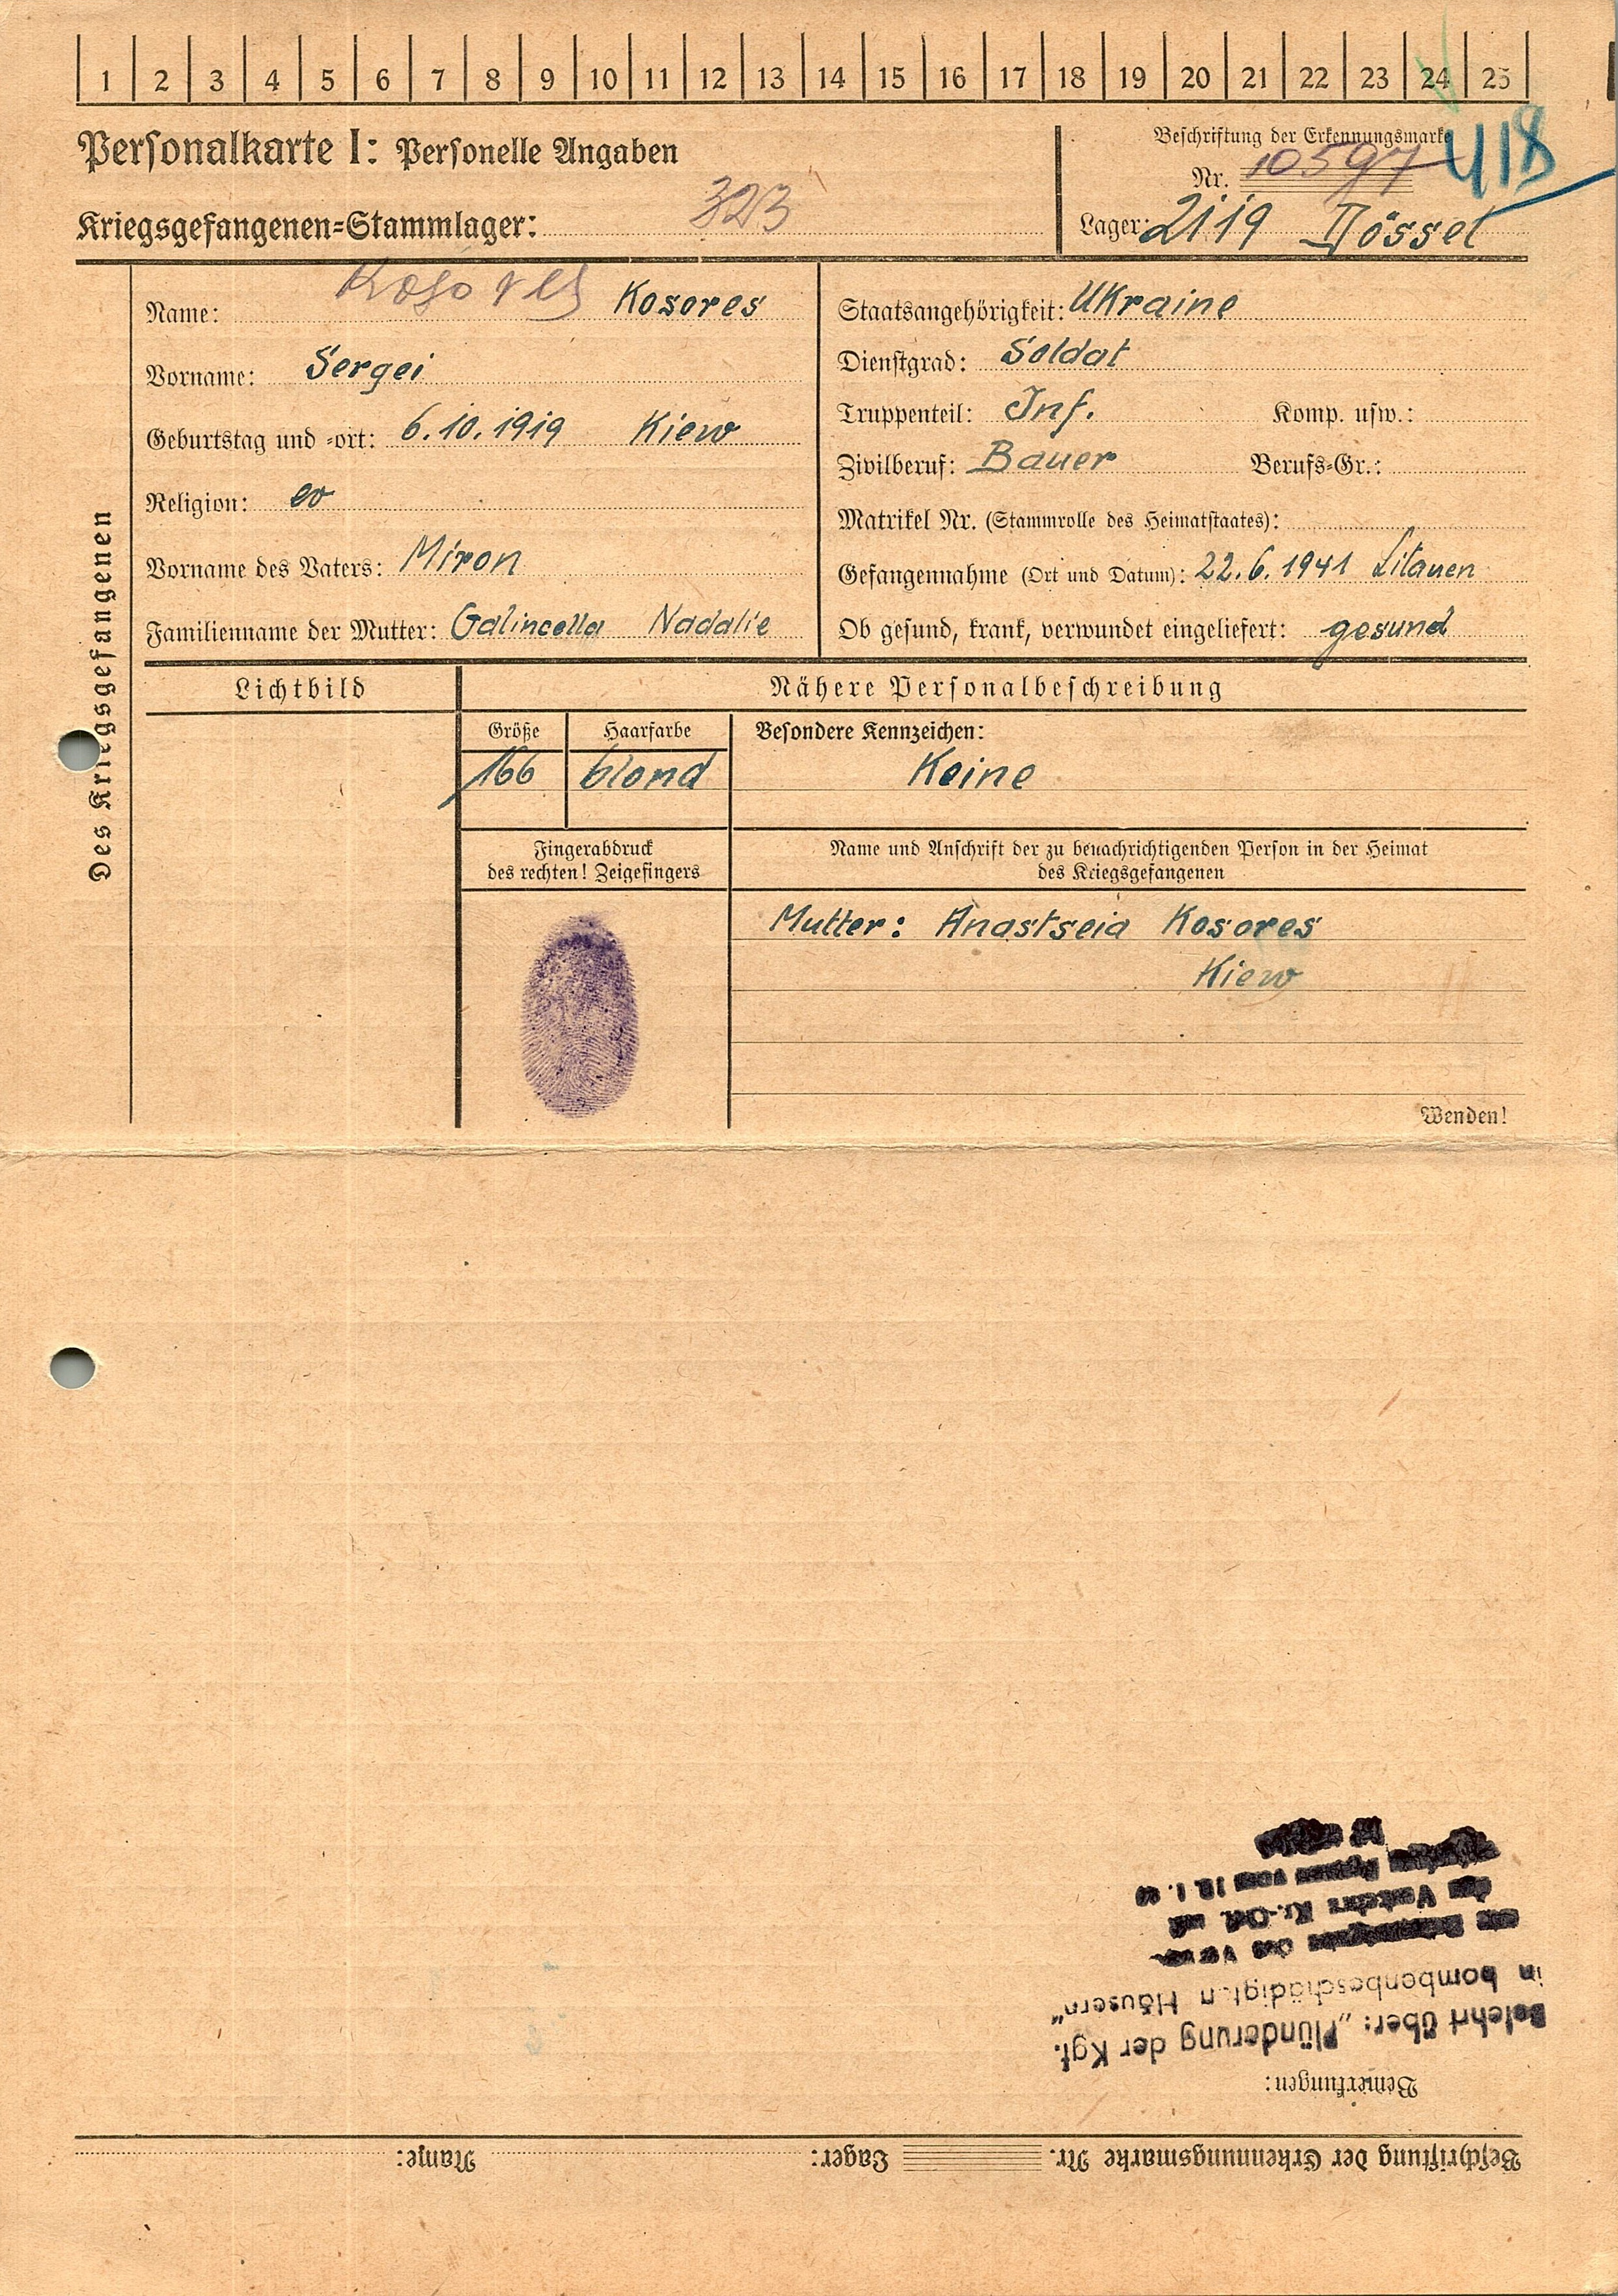 1 2 3 4 5 6 7 8 9 10 11 12 13 14 15 16 17 18 19 20 21 22 23 24 25
Personalkarte I: Personelle Angaben
Beschriftung der Erkennungsmarke
418
Nr. 10597
Kriegsgefangenen=Stammlager: 323
Lager: Dössel
Des Kriegsgefangenen
Name: Kosores Kosores
Vorname: Sergei
Geburtstag und =ort: 6.10.1919 Kiew
Religion: ev
Vorname des Vaters: Miron
Familienname der Mutter: Galincella Nadalie
Staatsangehörigkeit: Ukraine
Dienstgrad: Soldat
Truppenteil: Inf. Komp. usw.:
Zivilberuf: Bauer Berufs=Gr.:
Matrikel Nr. (Stammrolle des Heimatstaates):
Gefangennahme (Ort und Datum): 22.6.1941 Litauen
Ob gesund, krank, verwundet eingeliefert: gesund
Lichtbild
Nähere Personalbeschreibung
Größe Haarfarbe Besondere Kennzeichen:
166 blond Keine
Fingerabdruck
des rechten! Zeigefingers
Name und Anschrift der zu benachrichtigenden Person in der Heimat
des Kriegsgefangenen
Mutter: Anastseia Kosores
Kiew
Wenden!
Beschriftung der Erkennungsmarke Nr. Lager: Name:
Bemerkungen:
Belehrt über: „Plünderung der Kgf.
in bombenbeschädigt.n Häusern"